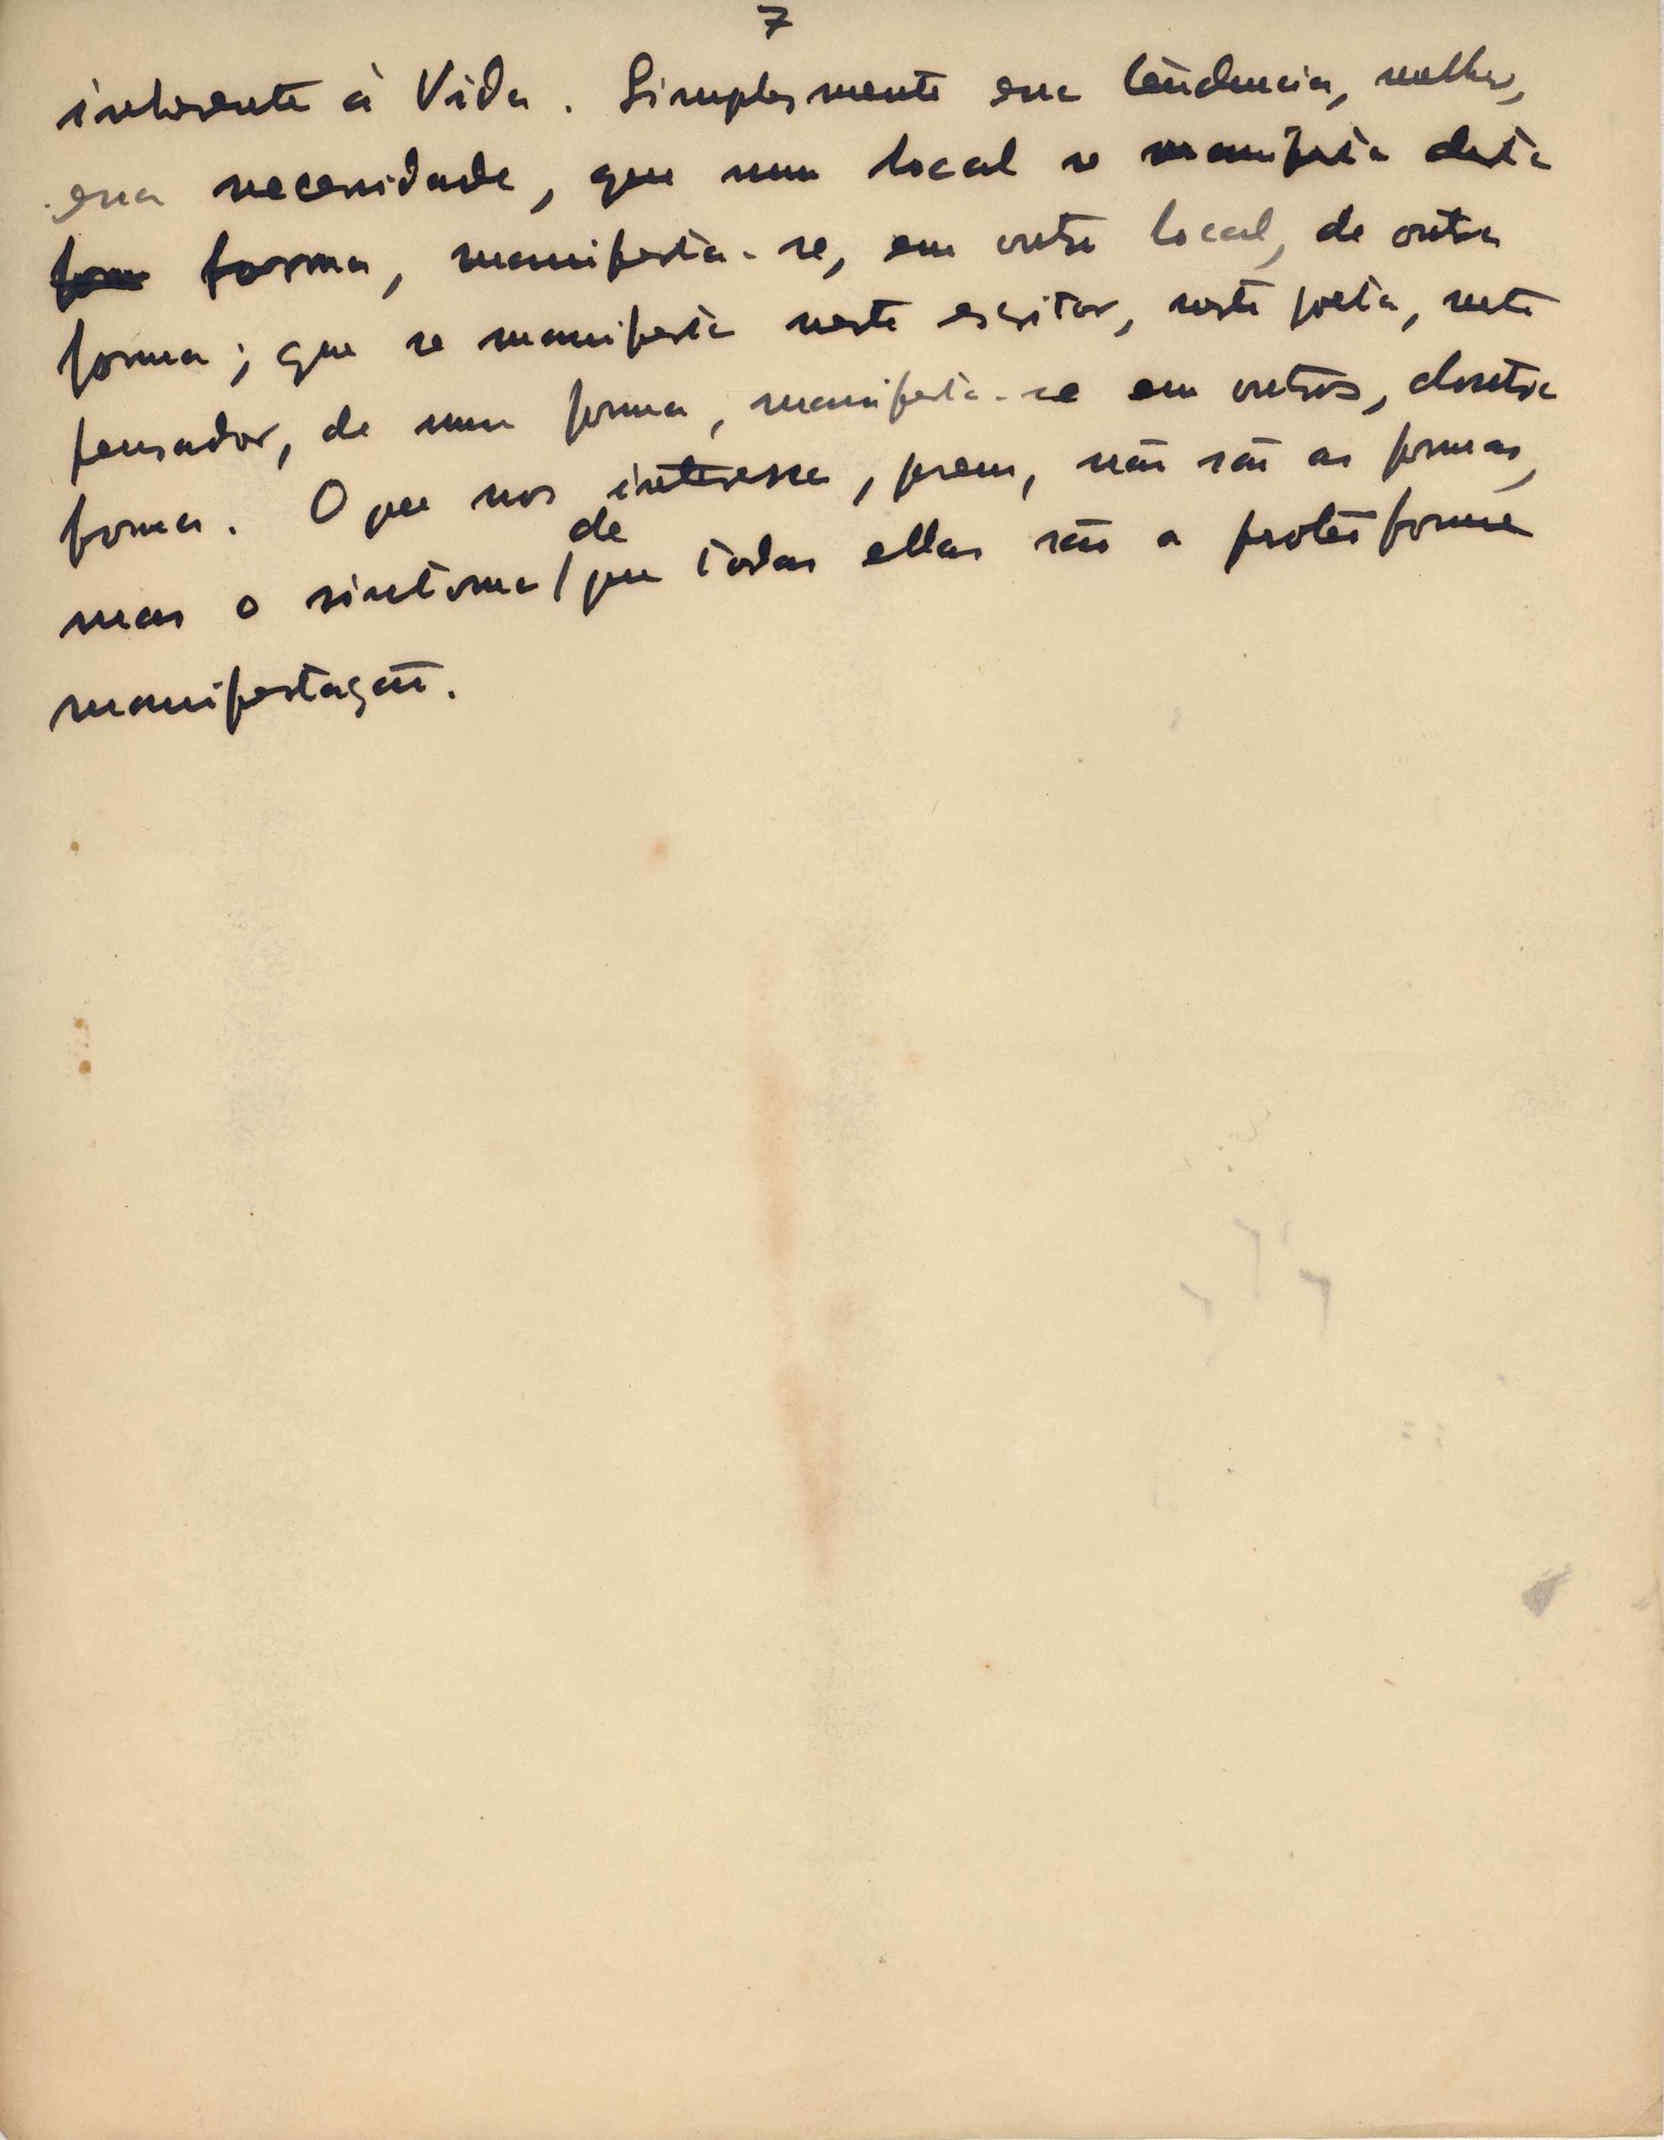 7
inherente á Vida. Simplesmente essa tendencia, melhor,
essa necessidade, que num local se manifesta desta
forma, manifesta-se, em outro local, de outra
forma; que se manifesta neste escritor, neste poeta, neste
pensador, de uma forma, manifesta-se em outros, doutra
forma. O que nos interessa, porem, não são as formas,
mas o sintoma de que todas ellas são a proteiforme
manifestação.